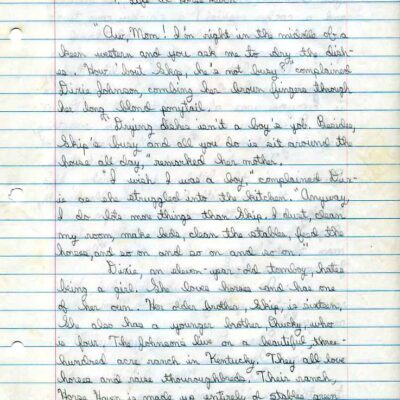 "Aw, Mom! I'm right in the middle of a
keen western and you ask me to dry the dish-
es. How 'bout Skip, he's not busy?" complained
Dixie Johnson, combing her brown fingers through
her long blond ponytail.
"Drying dishes isn't a boy's job. Besides,
Skip's busy and all you do is sit around the
house all day," remarked her mother.
"I wish I was a boy," complained Dix-
ie as she struggled into the kitchen. "Anyway,
I do lots more things than Skip. I dust, clean
my room, make beds, clean the stables, feed the
horses, and so on and so on and so on."
Dixie, an eleven-year-old tomboy, hates
being a girl. She loves horses and has one
of her own. Her older brother, Skip, is sixteen,
She also has a younger brother, Chucky, who
is four. The Johnsons live on a beautiful, three-
hundred acre ranch in Kentucky. They all love
horses and raise thouroughbreds. Their ranch,
Horse Haven is made up entirely of stables, green